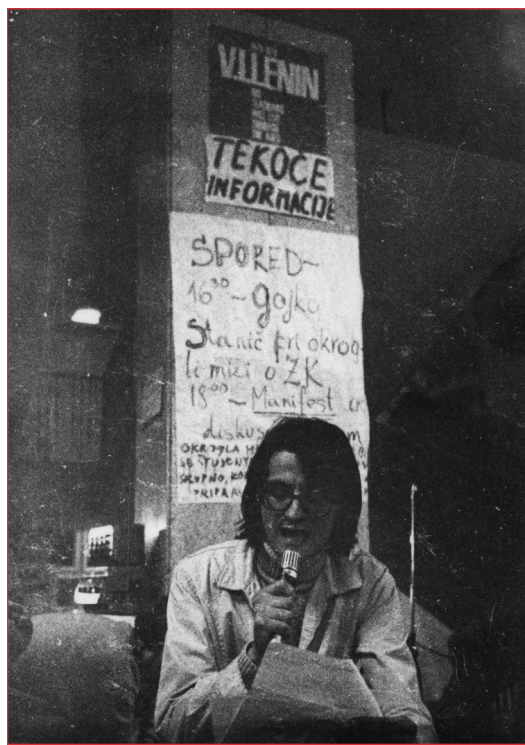 V.I.LENIN
TEKOČE
INFORMACIJE
SPORED~
16³⁰ ~ Gojko
Stanič pri okrog
li mizi o ZK
18⁰⁰ ~ Manifest in
diskus
OKROGLA M
SE ŠTUDENT
SKUPNO, KO
PRIPRA